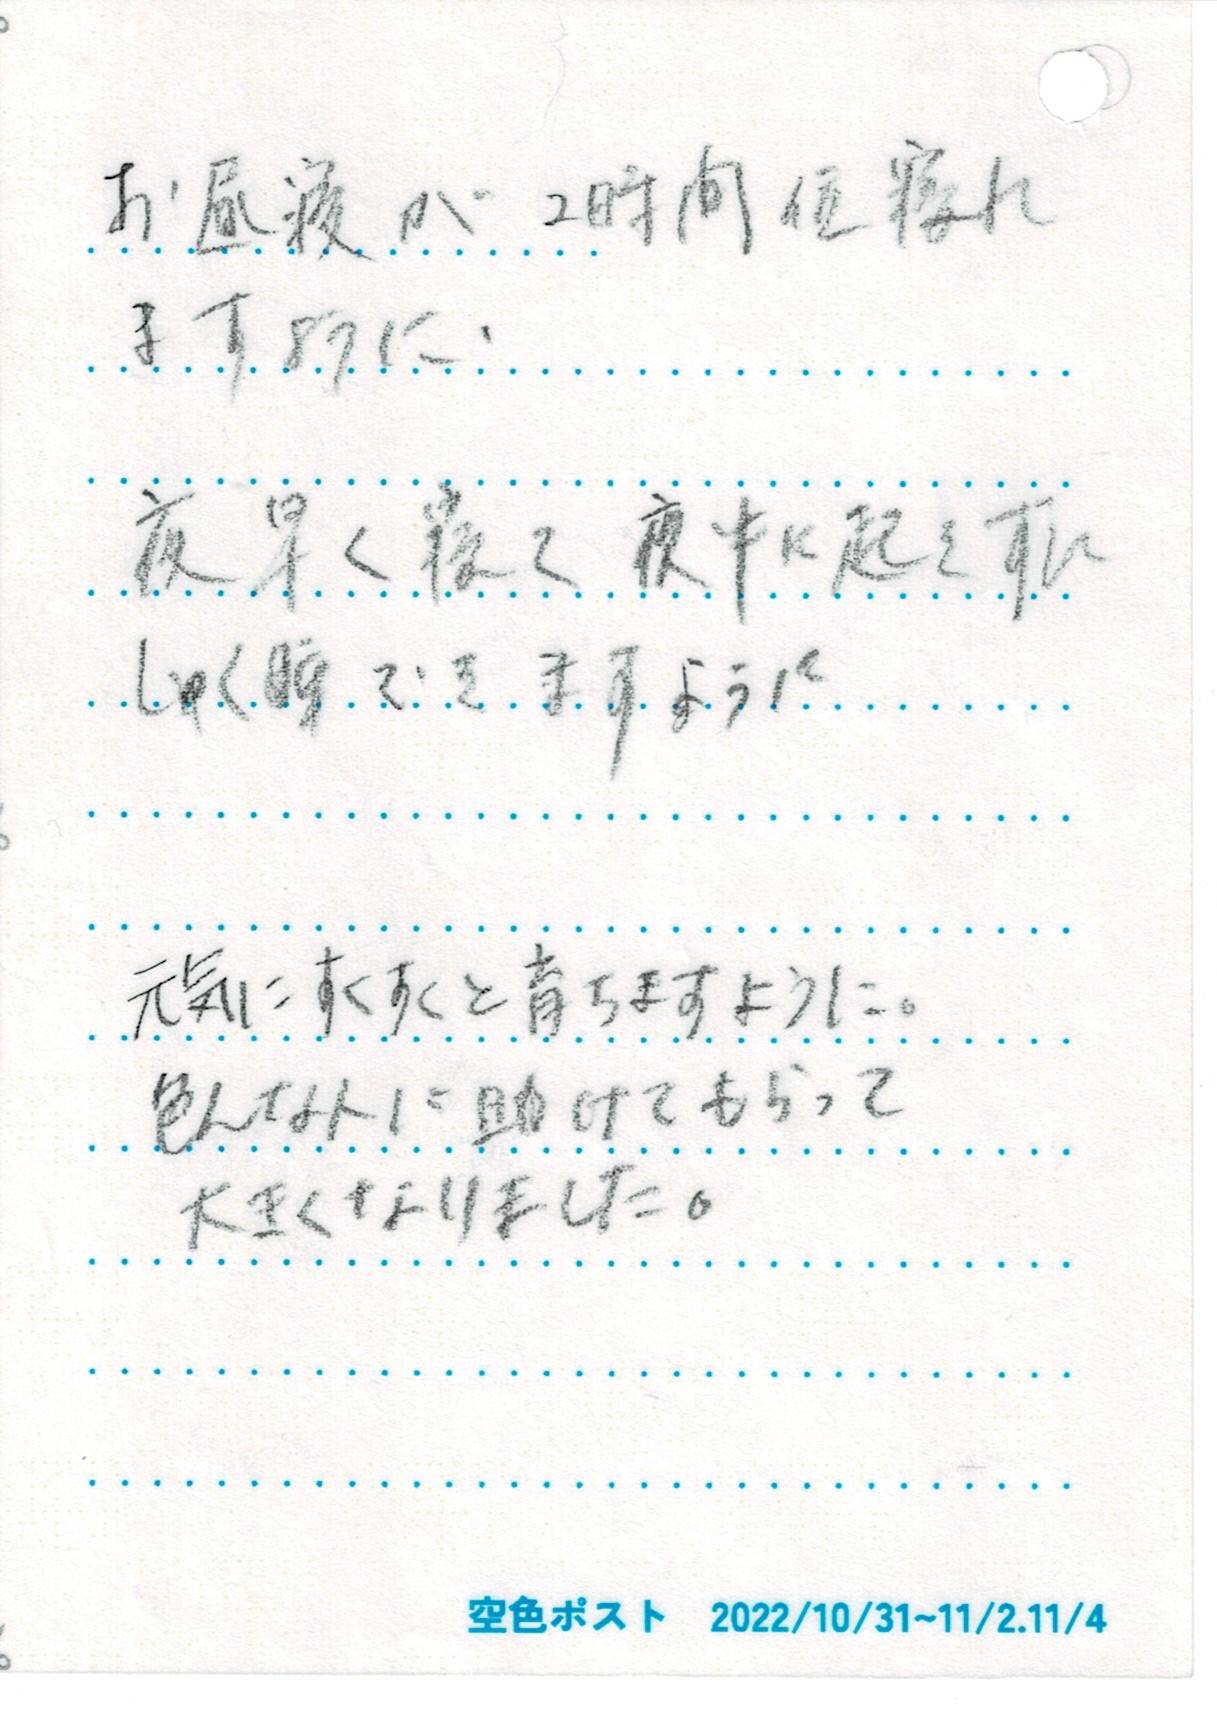 お昼寝が2時間位寝れ
ますように、
夜早く寝て夜中に起きずに
しゅく睡できますように
元気にすくすくと育ちますように。
色んな人に助けてもらって
大きくなりました。
空色ポスト 2022/10/31~11/2.11/4